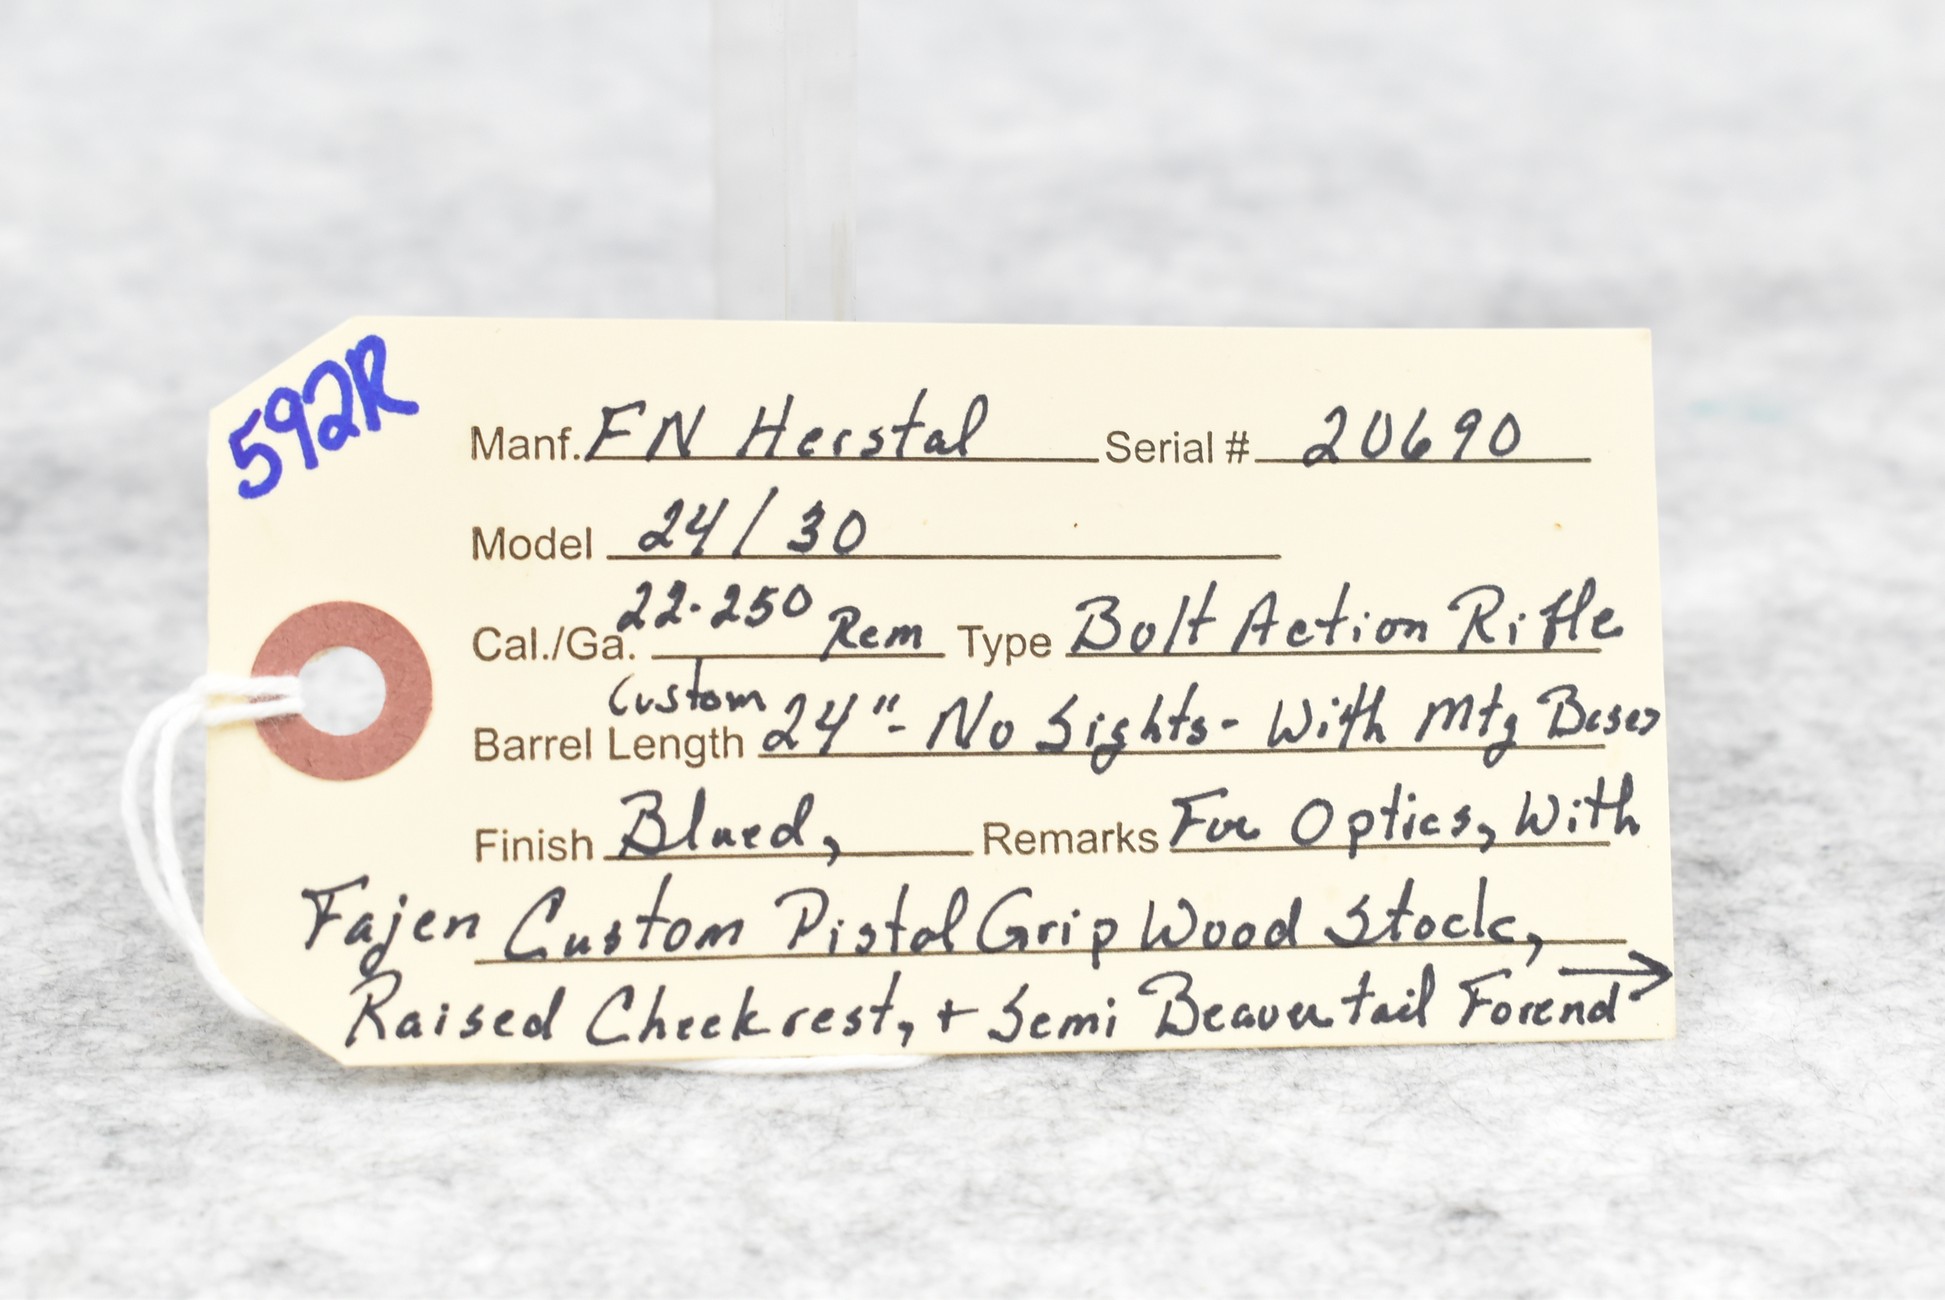 592R
Manf. FN Herstal Serial # 20690
Model 24/30
Cal./Ga. 22-250 Rem Type Bolt Action Rifle
Custom
Barrel Length 24"- No Sights- With Mtg Bases
Finish Blued, Remarks For Optics, With
Fajen Custom Pistol Grip Wood Stock,
Raised Cheekrest, + Semi Beavertail Forend →